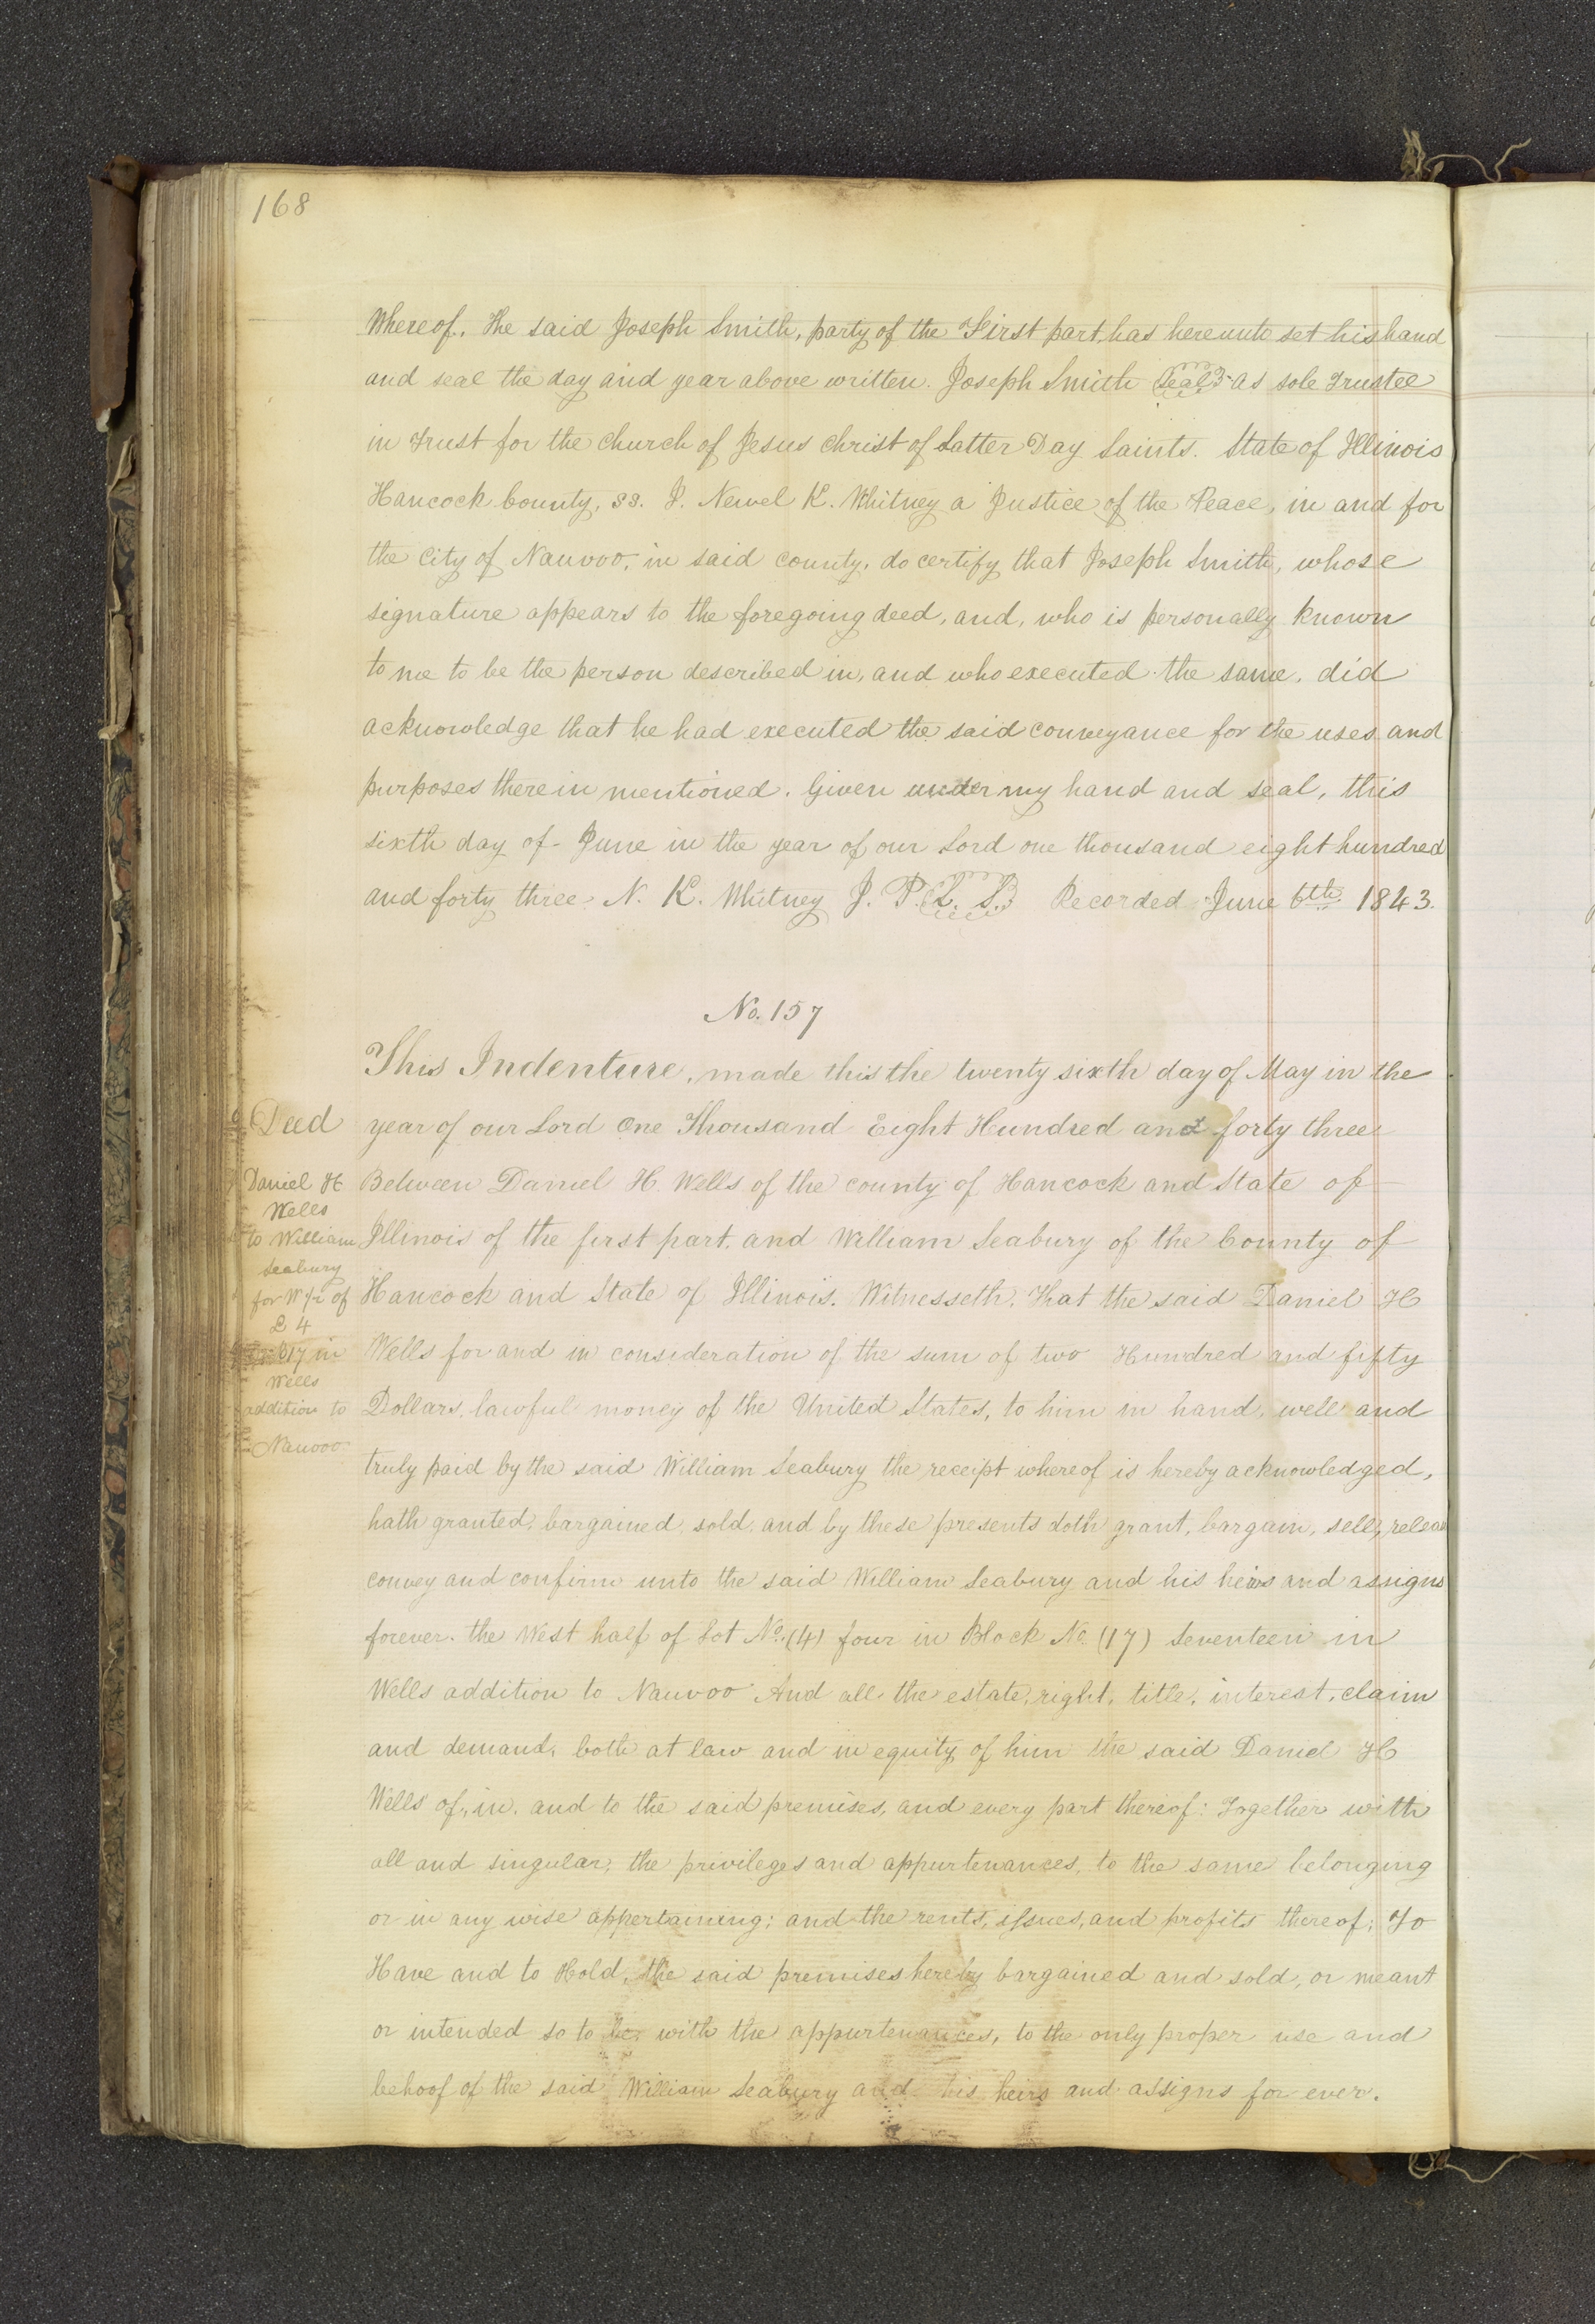 168
Whereof, the said Joseph Smith, party of the First part, has hereunto set his hand
and seal the day and year above written. Joseph Smith Seal as sole Trustee
in Trust for the Church of Jesus Christ of Latter Day Saints. State of Illinois
Hancock County, ss. I. Newel K. Whitney a Justice of the Peace, in and for
the City of Nauvoo, in said county, do certify that Joseph Smith, whose
signature appears to the foregoing deed, and, who is personally known
to me to be the person described in, and who executed the same, did
acknowledge that he had executed the said conveyance for the uses and
purposes therein mentioned. Given under my hand and seal, this
sixth day of June in the year of our Lord one thousand eight hundred
and forty three. N. K. Whitney J. P. L. S. Recorded June 6th 1843.
No. 157
This Indenture, made this the twenty sixth day of May in the
year of our Lord One Thousand Eight Hundred and forty three
Between Daniel H. Wells of the county of Hancock and State of
Illinois of the first part, and William Seabury of the County of
Hancock and State of Illinois. Witnesseth, That the said Daniel H
Wells for and in consideration of the sum of two Hundred and fifty
Dollars, lawful money of the United States, to him in hand, well and
truly paid by the said William Seabury the receipt whereof is hereby acknowledged,
hath granted, bargained, sold, and by these presents doth grant, bargain, sell, release
convey and confirm unto the said William Seabury and his heirs and assigns
forever. the West half of Lot No. (4) four in Block No. (17) Seventeen in
Wells addition to Nauvoo And all the estate, right, title, interest, claim
and demand, both at law and in equity of him the said Daniel H
Wells of, in, and to the said premises, and every part thereof: Together with
all and singular, the privileges and appurtenances, to the same belonging
or in any wise appertaining; and the rents, issues, and profits thereof; To
Have and to Hold, the said premises hereby bargained and sold, or meant
or intended so to be, with the appurtenances, to the only proper use and
behoof of the said William Seabury and his heirs and assigns for ever.
Deed
Daniel H
Wells
to William
Seabury
for W 1/2 of
L 4
17 in
Wells
addition to
Nauvoo